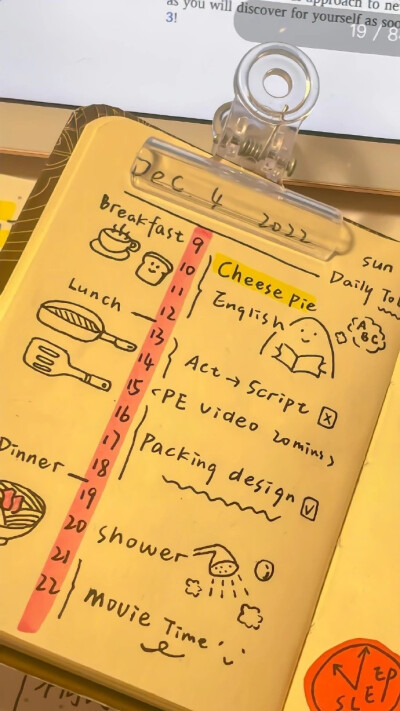 as you will discover for yourself as
3!
19 /
Dec. 4 2022
sun
Daily
Breakfast
Lunch
Dinner
9
10
11
12
13
14
15
16
17
18
19
20
21
22
Cheese Pie
English
A
BC
Act → Script x
<PE video 20mins>
Packing design v
shower
Movie Time
SLEEP